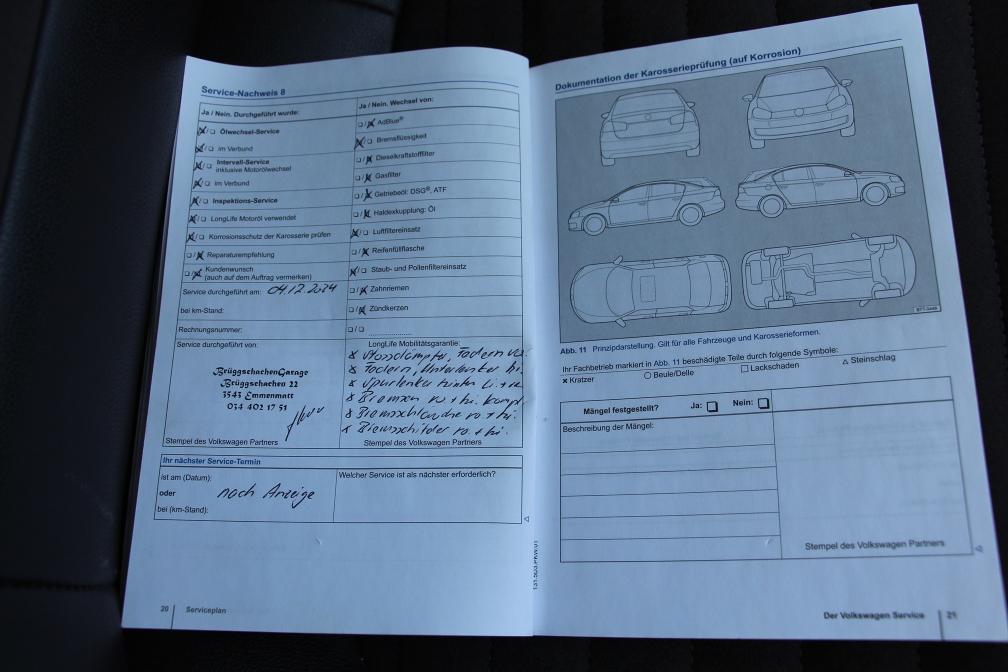 Service-Nachweis 8
Ja / Nein. Durchgeführt wurde:
Ölwechsel-Service
im Verbund
Intervall-Service
inklusive Motorölwechsel
im Verbund
Inspektions-Service
LongLife Motoröl verwendet
Korrosionsschutz der Karosserie prüfen
Reparaturempfehlung
Kundenwunsch
(auch auf dem Auftrag vermerken)
Service durchgeführt am: 04.12.2024
bei km-Stand:
Rechnungsnummer:
Service durchgeführt von:
BrüggschachenGarage
Brüggschachen 22
3543 Emmenmatt
034 402 17 51
Stempel des Volkswagen Partners
Ja / Nein. Wechsel von:
AdBlue®
Bremsflüssigkeit
Dieselkraftstofffilter
Gasfilter
Getriebeöl: DSG®, ATF
Haldexkupplung: Öl
Luftfiltereinsatz
Reifenfüllflasche
Staub- und Pollenfiltereinsatz
Zahnriemen
Zündkerzen
LongLife Mobilitätsgarantie:
x Stossdämpfer, Federn vo.
x Federn, Unterlenker hi.
x Spurlenker hinten li + re
x Bremsen vo + hi. kompl.
x Bremsschläuche vo + hi.
x Bremsschilder vo. + hi.
Stempel des Volkswagen Partners
Ihr nächster Service-Termin
ist am (Datum):
oder nach Anzeige
bei (km-Stand):
Welcher Service ist als nächster erforderlich?
20 Serviceplan
Dokumentation der Karosserieprüfung (auf Korrosion)
Abb. 11 Prinzipdarstellung. Gilt für alle Fahrzeuge und Karosserieformen.
Ihr Fachbetrieb markiert in Abb. 11 beschädigte Teile durch folgende Symbole:
× Kratzer ○ Beule/Delle □ Lackschaden △ Steinschlag
Mängel festgestellt? Ja: Nein:
Beschreibung der Mängel:
Stempel des Volkswagen Partners
Der Volkswagen Service 21